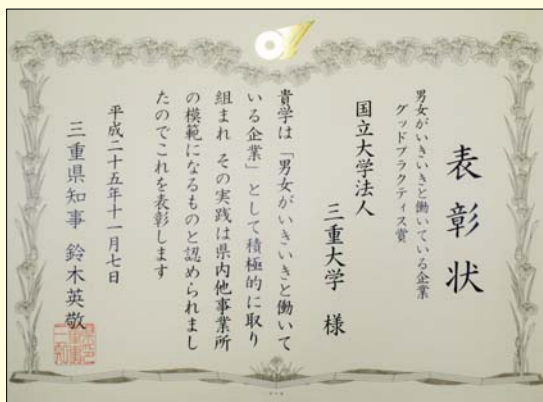 表彰状
男女がいきいきと働いている企業
グッドプラクティス賞
国立大学法人
三重大学 様
貴学は「男女がいきいきと働いて
いる企業」として積極的に取り
組まれ その実践は県内他事業所
の模範になるものと認められまし
たのでこれを表彰します
平成二十五年十一月七日
三重県知事 鈴木英敬